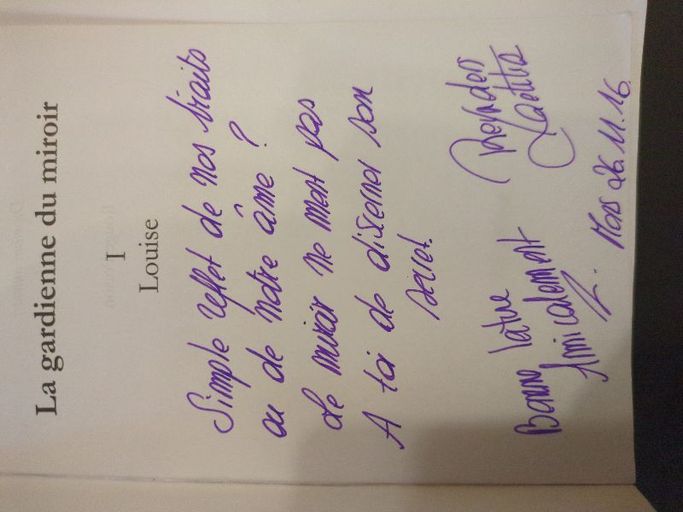 La gardienne du miroir
I
Louise
Simple reflet de nos traits
ou de notre âme ?
Le miroir ne ment pas
A toi de discerner son
secret.
Bonne lecture
Amicalement
Reynders
Laetitia
Mons 26.11.16